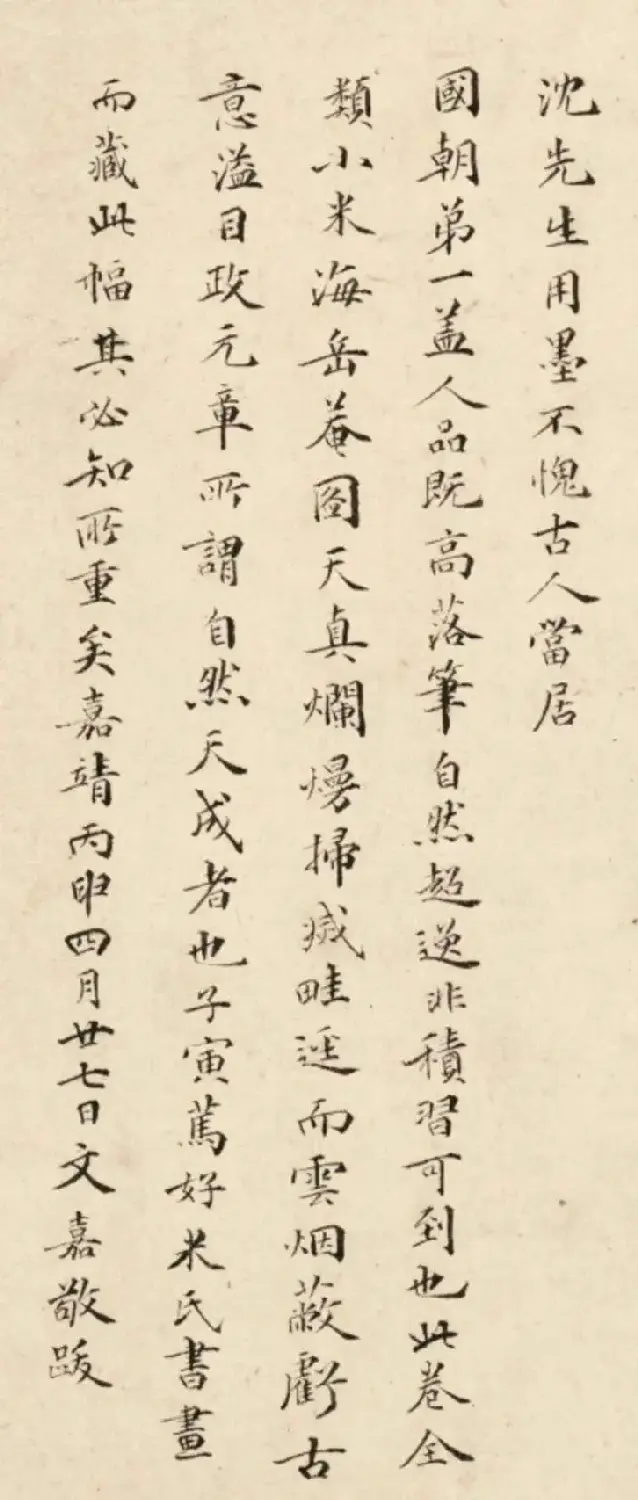 沈先生用墨不愧古人當居
國朝弟一盖人品既高落筆自然超逸非積習可到也此卷全
類小米海岳菴圖天真爛熳掃滅畦逕而雲烟蔽虧古
意溢目政元章所謂自然天成者也子寅篤好米氏書畫
而藏此幅其必知所重矣嘉靖丙申四月廿七日文嘉敬跋